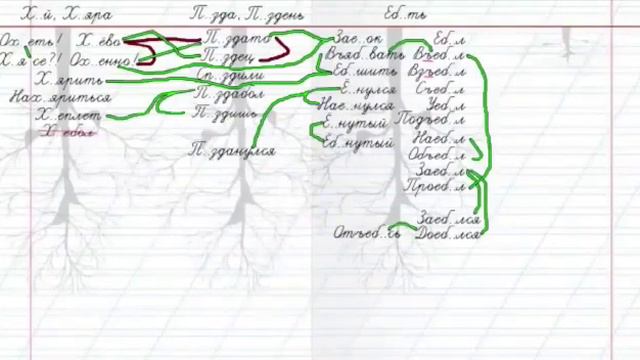 Х.й, Х.яра
П.зда, П.здень
Еб.ть
Ох.еть! Х.ёво
Х.я се?! Ох.енно!
Х.ярить
Нах.яриться
Х.еплет
Х.ебол
П.здато
П.здец
Сп.здили
П.здабол
П.здишь
П.зданулся
Зае..ок
Въяб.вать
Еб.шить
Е.нулся
Нае.нулся
Е..нутый
Еб.нутый
Отъеб..сь
Еб.л
Въеб.л
Взъеб.л
Съеб.л
Уеб.л
Подъеб.л
Наеб.л
Объеб.л
Заеб.л
Проеб.л
Заеб.лся
Доеб.лся